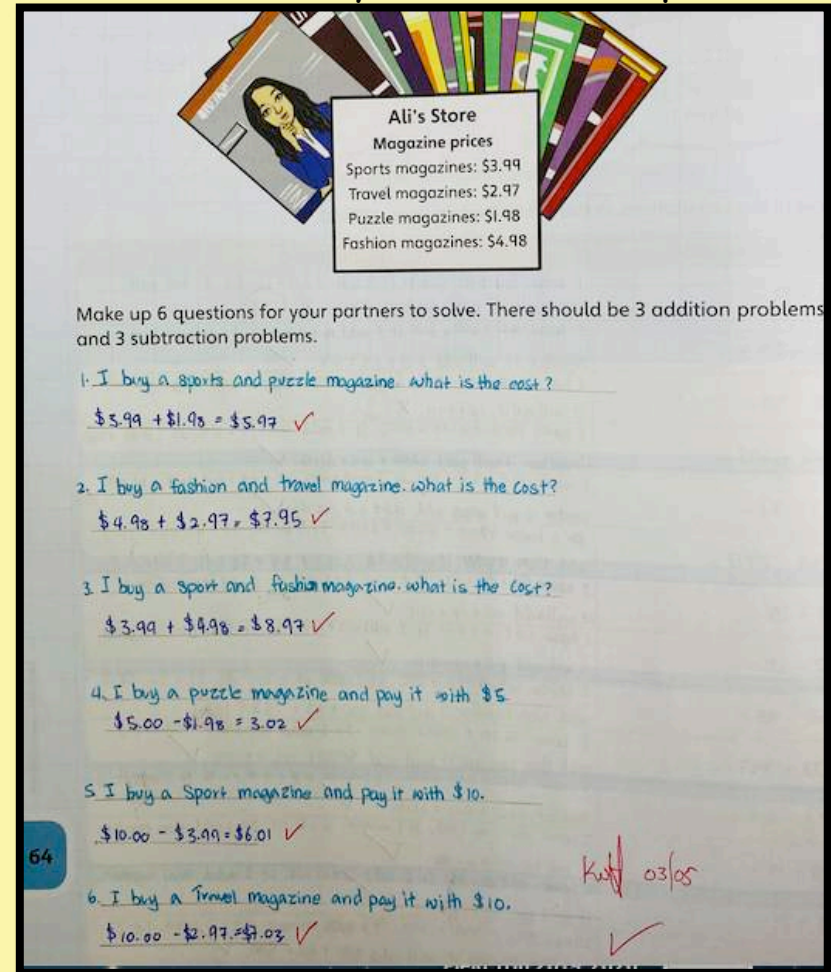 Ali's Store
Magazine prices
Sports magazines: $3.99
Travel magazines: $2.97
Puzzle magazines: $1.98
Fashion magazines: $4.98
Make up 6 questions for your partners to solve. There should be 3 addition problems
and 3 subtraction problems.
1. I buy a sports and puzzle magazine what is the cost?
$3.99 + $1.98 = $5.97
2. I buy a fashion and travel magazine. what is the cost?
$4.98 + $2.97 = $7.95
3 I buy a sport and fashion magazine. what is the cost?
$3.99 + $4.98 = $8.97
4. I buy a puzzle magazine and pay it with $5
$5.00 - $1.98 = 3.02
5 I buy a Sport magazine and pay it with $10.
$10.00 - $3.99 = $6.01
64
03/05
6. I buy a Travel magazine and pay it with $10.
$10.00 - $2.97 = $7.03